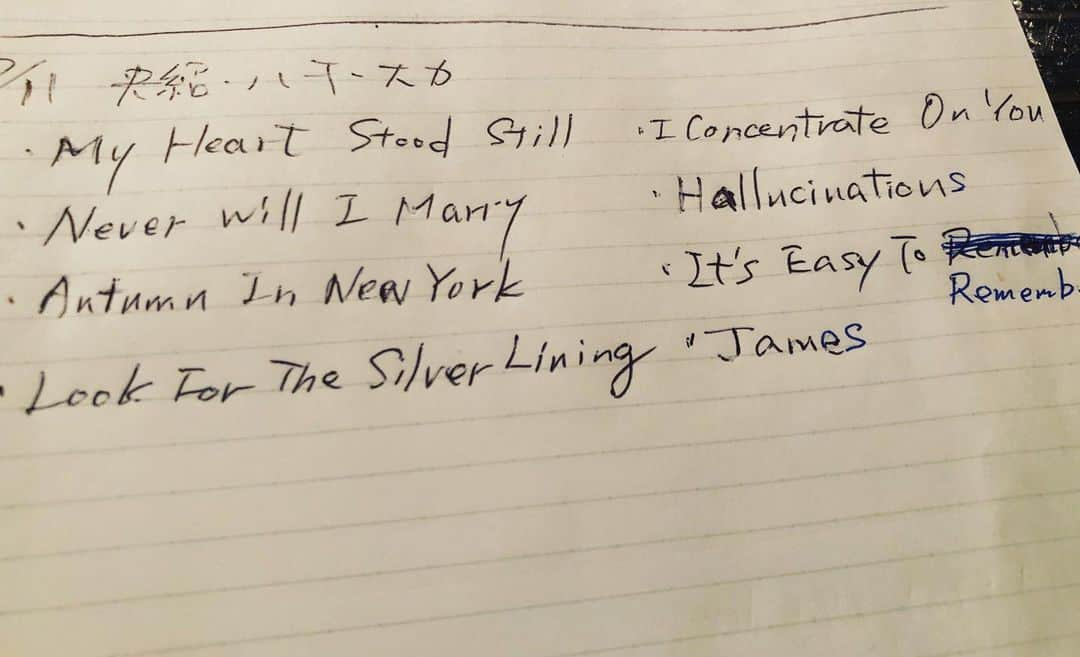 /11 央紹
・My Heart Stood Still
・Never Will I Marry
・Autumn In New York
・Look For The Silver Lining
・I Concentrate On You
・Hallucinations
・It's Easy To
Rememb
・James